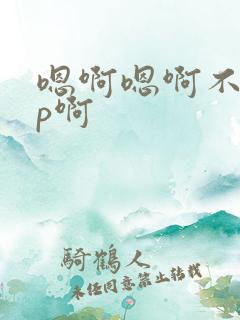 嗯啊嗯啊不
p啊
騎鶴人
未任同意禁止轉載